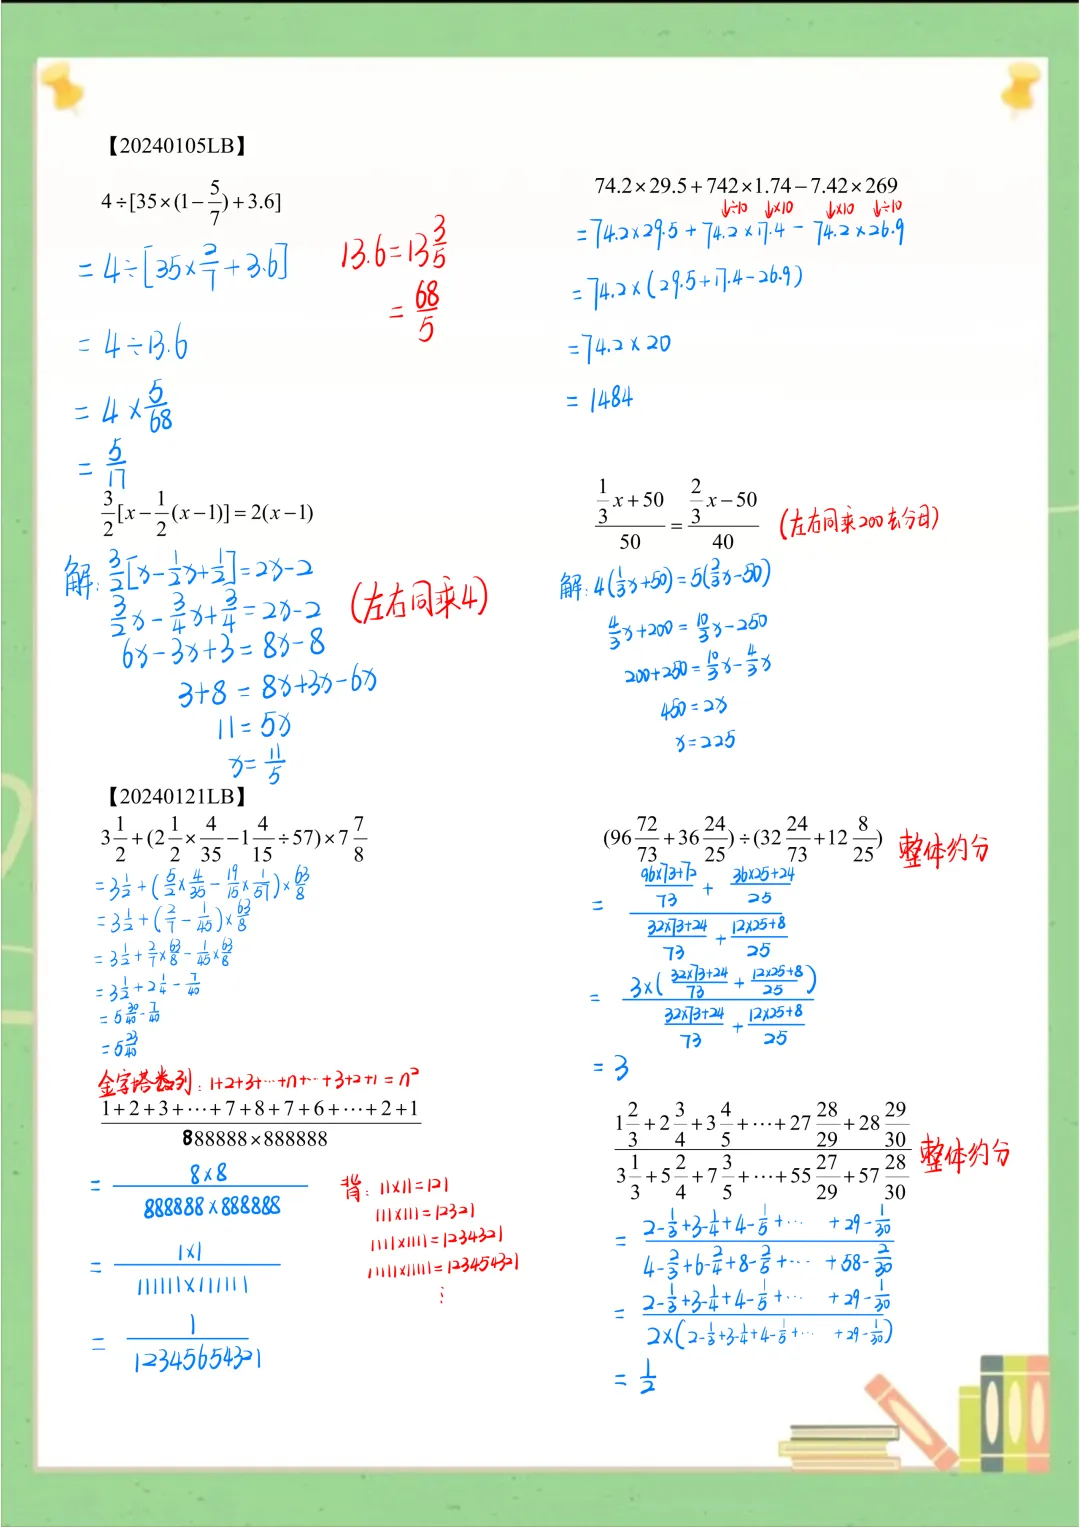 【20240105LB】
4÷[35×(1−5/7)+3.6]
=4÷[35×2/7+3.6]
13.6=13 3/5
=68/5
=4÷13.6
=4×5/68
=5/17
74.2×29.5+742×1.74−7.42×269
↓÷10 ↓×10 ↓×10 ↓÷10
=74.2×29.5+74.2×17.4−74.2×26.9
=74.2×(29.5+17.4−26.9)
=74.2×20
=1484
3/2[x−1/2(x−1)]=2(x−1)
解:3/2[x−1/2x+1/2]=2x−2
3/2x−3/4x+3/4=2x−2
(左右同乘4)
6x−3x+3=8x−8
3+8=8x+3x−6x
11=5x
x=11/5
(1/3x+50)/50=(2/3x−50)/40
(左右同乘200去分母)
解:4(1/3x+50)=5(2/3x−50)
4/3x+200=10/3x−250
200+250=10/3x−4/3x
450=2x
x=225
【20240121LB】
3 1/2+(2 1/2×4/35−1 4/15÷57)×7 7/8
=3 1/2+(5/2×4/35−19/15×1/57)×63/8
=3 1/2+(2/7−1/45)×63/8
=3 1/2+2/7×63/8−1/45×63/8
=3 1/2+2 1/4−7/40
=5 30/40−7/40
=5 23/40
(96 72/73+36 24/25)÷(32 24/73+12 8/25)
整体约分
=((96×73+72)/73+(36×25+24)/25)/((32×73+24)/73+(12×25+8)/25)
=3×((32×73+24)/73+(12×25+8)/25)/((32×73+24)/73+(12×25+8)/25)
=3
金字塔数列:1+2+3+⋯+n+⋯+3+2+1=n²
(1+2+3+⋯+7+8+7+6+⋯+2+1)/(888888×888888)
=(8×8)/(888888×888888)
=(1×1)/(111111×111111)
=1/12345654321
背:11×11=121
111×111=12321
1111×1111=1234321
11111×11111=123454321
⋮
(1 2/3+2 3/4+3 4/5+⋯+27 28/29+28 29/30)/(3 1/3+5 2/4+7 3/5+⋯+55 27/29+57 28/30)
整体约分
=(2−1/3+3−1/4+4−1/5+⋯+29−1/30)/(4−2/3+6−2/4+8−2/5+⋯+58−2/30)
=(2−1/3+3−1/4+4−1/5+⋯+29−1/30)/(2×(2−1/3+3−1/4+4−1/5+⋯+29−1/30))
=1/2